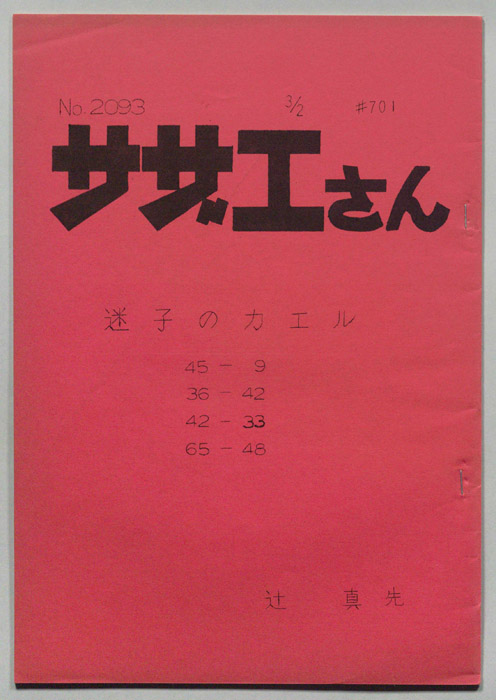 No. 2093 3/2 #701
サザエさん
迷子のカエル
45 - 9
36 - 42
42 - 33
65 - 48
辻 真先